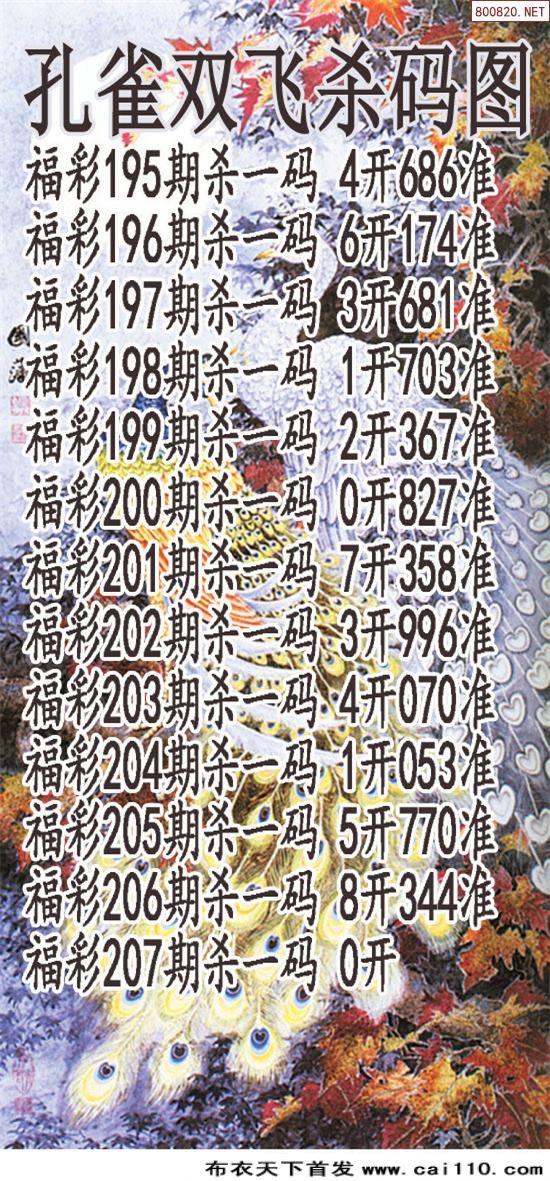 800820.NET
孔雀双飞杀码图
福彩195期杀一码 4开686准
福彩196期杀一码 6开174准
福彩197期杀一码 3开681准
福彩198期杀一码 1开703准
福彩199期杀一码 2开367准
福彩200期杀一码 0开827准
福彩201期杀一码 7开358准
福彩202期杀一码 3开996准
福彩203期杀一码 4开070准
福彩204期杀一码 1开053准
福彩205期杀一码 5开770准
福彩206期杀一码 8开344准
福彩207期杀一码 0开
布衣天下首发 www.cai110.com